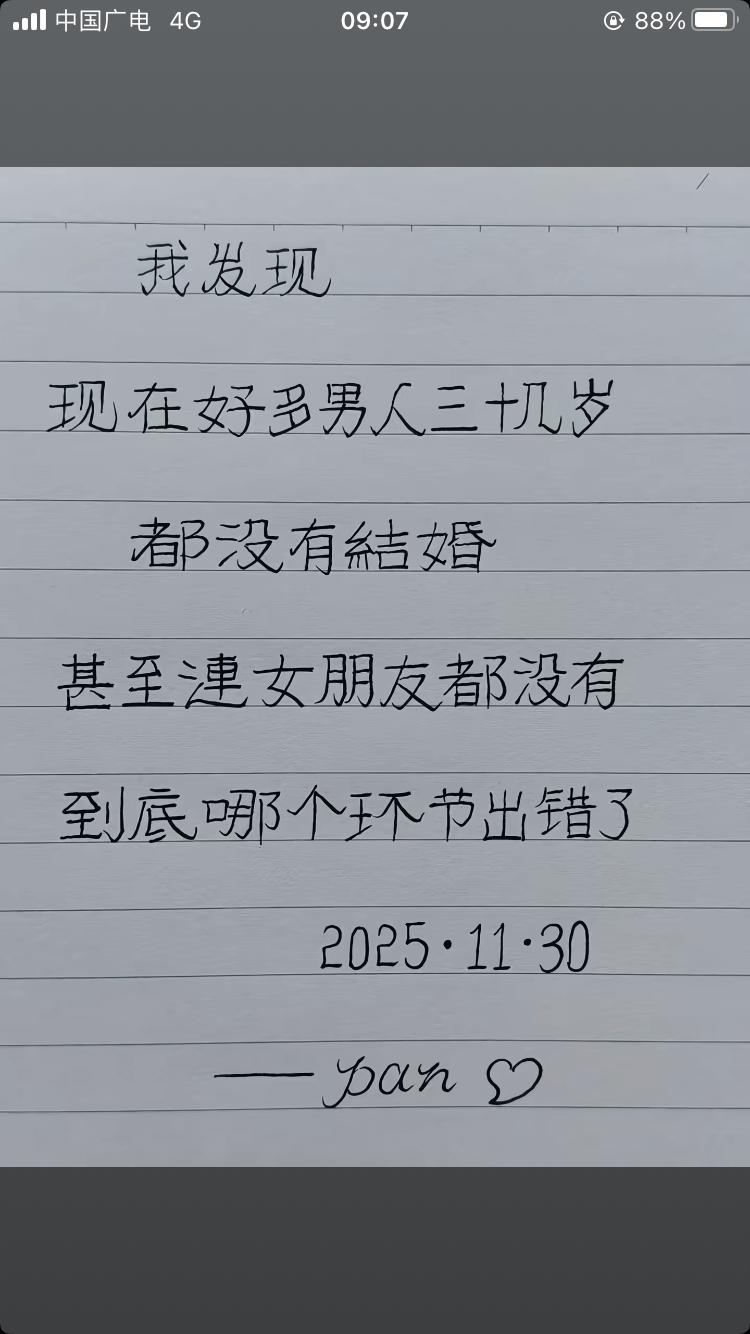 中国广电 4G 09:07 88%
我发现
现在好多男人三十几岁
都没有結婚
甚至連女朋友都没有
到底哪个环节出错了
2025·11·30
——pan ♡